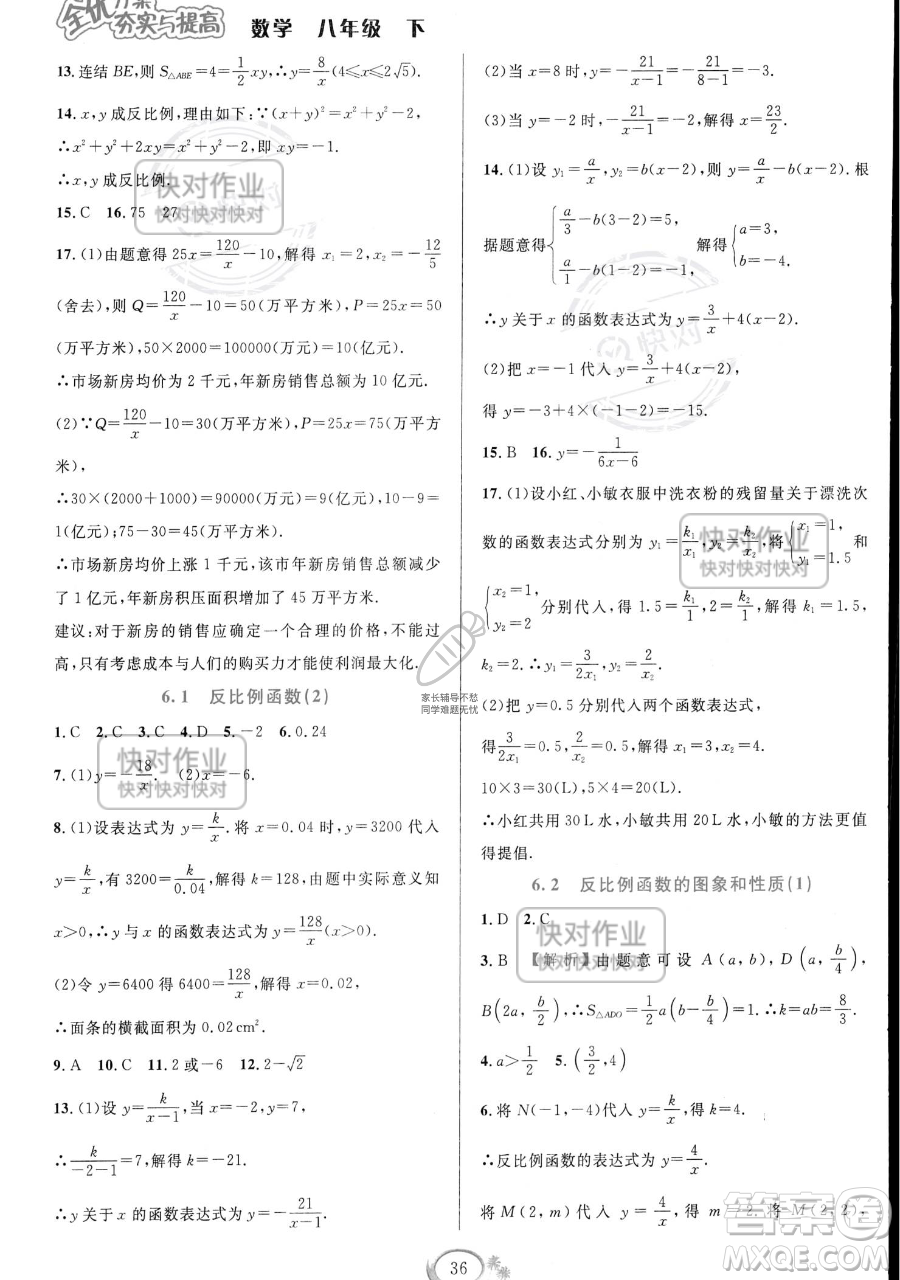 全优方案
夯实与提高 数学 八年级 下
13.连结BE,则S△ABE=4=1/2xy,∴y=8/x(4≤x≤2√5).
14.x,y成反比例,理由如下:∵(x+y)²=x²+y²-2,
∴x²+y²+2xy=x²+y²-2,即xy=-1.
∴x,y成反比例.
15.C 16.75 27
17.(1)由题意得25x=120/x-10,解得x₁=2,x₂=-12/5
(舍去),则Q=120/x-10=50(万平方米),P=25x=50
(万平方米),50×2000=100000(万元)=10(亿元).
∴市场新房均价为2千元,年新房销售总额为10亿元.
(2)∵Q=120/x-10=30(万平方米),P=25x=75(万平方
米),
∴30×(2000+1000)=90000(万元)=9(亿元),10-9=
1(亿元);75-30=45(万平方米).
∴市场新房均价上涨1千元,该市年新房销售总额减少
了1亿元,年新房积压面积增加了45万平方米.
建议:对于新房的销售应确定一个合理的价格,不能过
高,只有考虑成本与人们的购买力才能使利润最大化.
6.1 反比例函数(2)
1.C 2.C 3.C 4.D 5.-2 6.0.24
7.(1)y=-18/x. (2)x=-6.
8.(1)设表达式为y=k/x.将x=0.04时,y=3200代入
y=k/x,有3200=k/0.04,解得k=128,由题中实际意义知
x>0,∴y与x的函数表达式为y=128/x(x>0).
(2)令y=6400得6400=128/x,解得x=0.02,
∴面条的横截面积为0.02cm².
9.A 10.C 11.2或-6 12.2-√2
13.(1)设y=k/(x-1),当x=-2时,y=7,
∴k/(-2-1)=7,解得k=-21.
∴y关于x的函数表达式为y=-21/(x-1).
(2)当x=8时,y=-21/(x-1)=-21/(8-1)=-3.
(3)当y=-2时,-21/(x-1)=-2,解得x=23/2.
14.(1)设y₁=a/x,y₂=b(x-2),则y=a/x-b(x-2).根
据题意得{a/3-b(3-2)=5, a/1-b(1-2)=-1. 解得{a=3, b=-4.
∴y关于x的函数表达式为y=3/x+4(x-2).
(2)把x=-1代入y=3/x+4(x-2),
得y=-3+4×(-1-2)=-15.
15.B 16.y=-1/(6x-6)
17.(1)设小红、小敏衣服中洗衣粉的残留量关于漂洗次
数的函数表达式分别为y₁=k₁/x₁,y₂=k₂/x₂,将{x₁=1, y₁=1.5 和
{x₂=1, y₂=2 分别代入,得1.5=k₁/1,2=k₂/1,解得k₁=1.5,
k₂=2.
(2)把y=0.5分别代入两个函数表达式,
得3/2x₁=0.5,2/x₂=0.5,解得x₁=3,x₂=4.
10×3=30(L),5×4=20(L).
∴小红共用30L水,小敏共用20L水,小敏的方法更值
得提倡.
6.2 反比例函数的图象和性质(1)
1.D 2.C
3.B 【解析】由题意可设A(a,b),D(a,b/4),
B(2a,b/2),∴S△ADO=1/2a(b-b/4)=1.∴k=ab=8/3.
4.a>1/2 5.(3/2,4)
6.将N(-1,-4)代入y=k/x,得k=4.
∴反比例函数的表达式为y=4/x.
将M(2,m)代入y=4/x,得m=2.将M(2,2),
36
快对作业
快对快对快对
快对作业
快对快对快对
快对作业
快对快对快对
快对作业
快对快对快对
快对
家长辅导不愁
同学难题无忧
答案卷
MXQE.COM